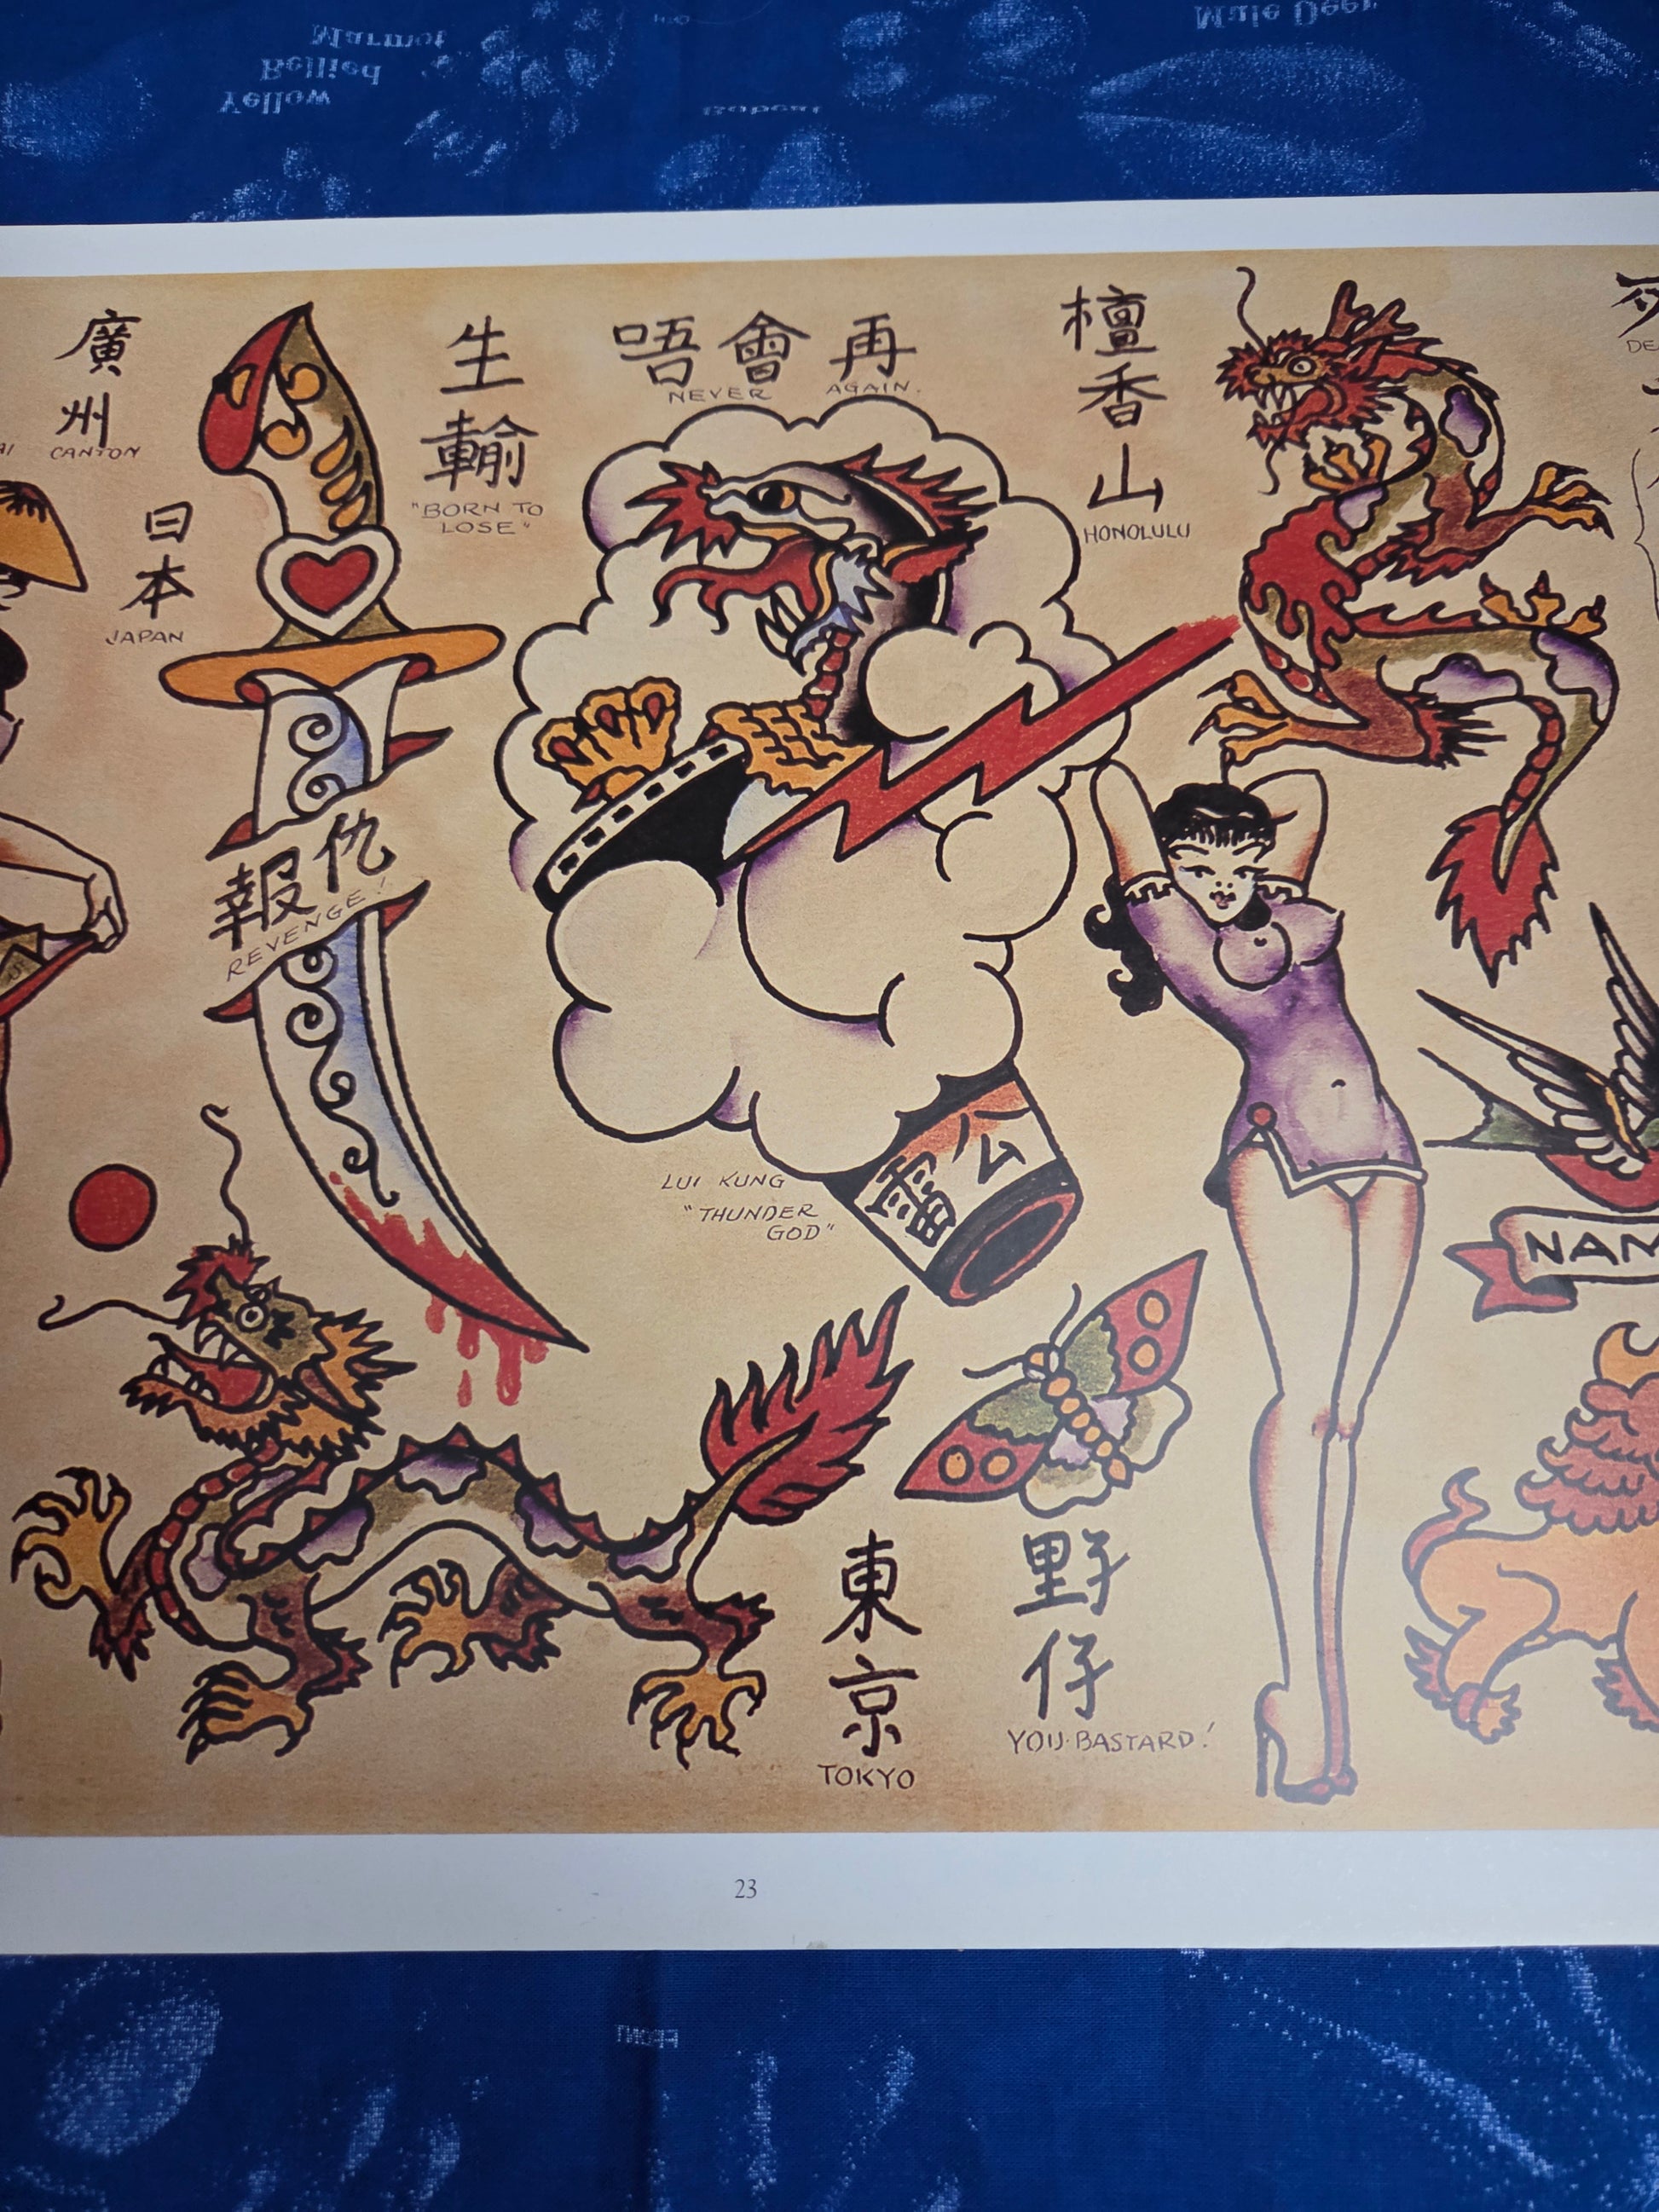 Mule Deer
Marmot
Bellied
Yellow
Bobcat
廣州
CANTON
日本
JAPAN
生輸
"BORN TO
LOSE"
唔會再
NEVER AGAIN.
檀香山
HONOLULU
報仇
REVENGE!
雷公
LUI KUNG
"THUNDER
GOD"
NAM
東京
TOKYO
野仔
YOU BASTARD!
23
FRONT